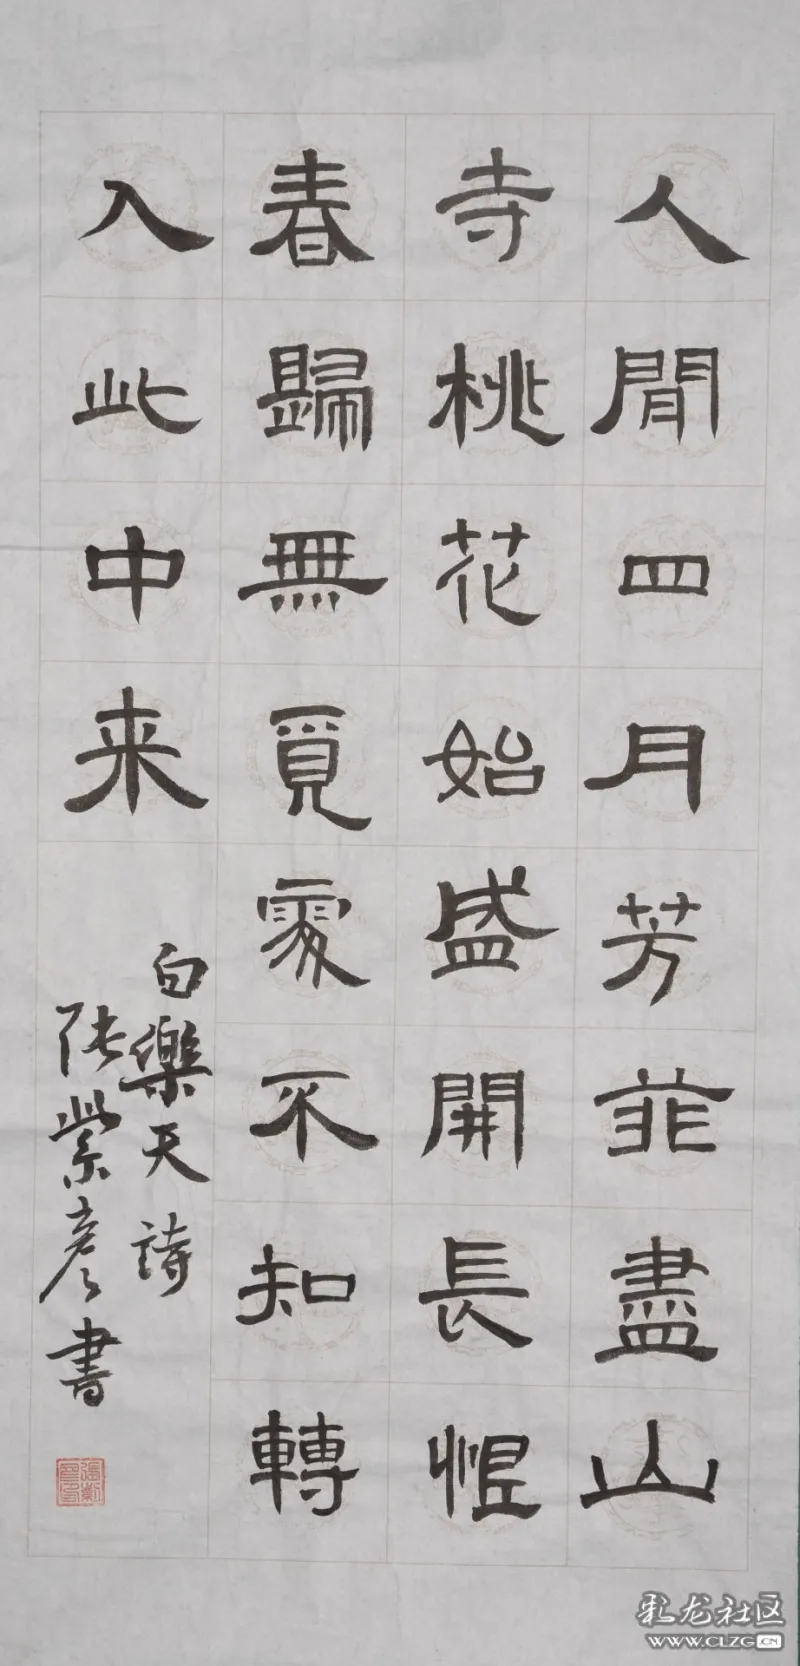 人間四月芳菲盡山
寺桃花始盛開長恨
春歸無覓處不知轉
入此中来
白樂天詩
張紫彦書
彩龙社区
WWW.CLZG.CN